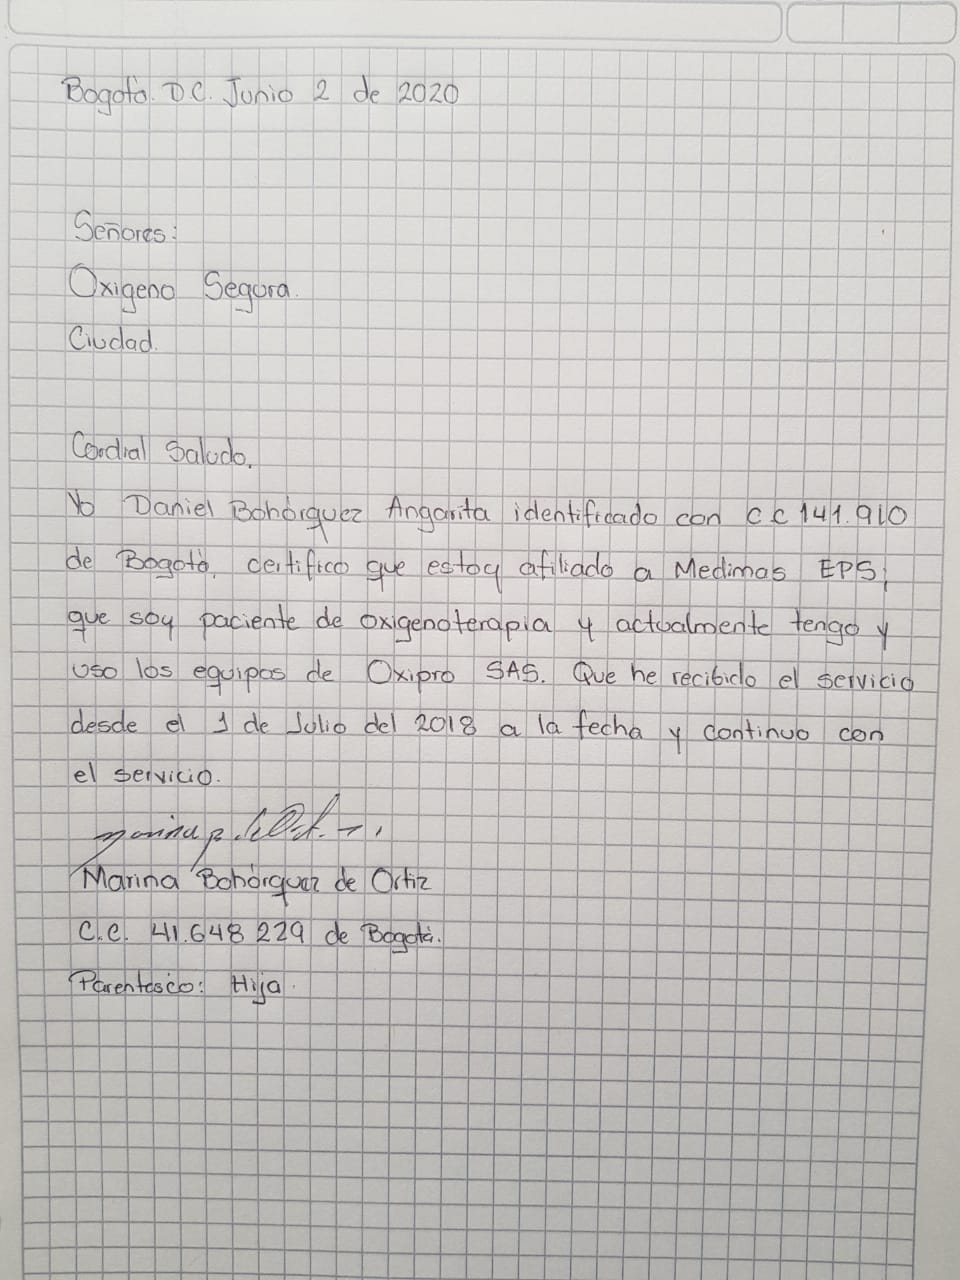 Bogotá. D.C. Junio 2 de 2020
Señores:
Oxigeno Segura.
Ciudad.
Cordial Saludo,
Yo Daniel Bohórquez Angarita identificado con C.C 141.910
de Bogotá, certifico que estoy afiliado a Medimas EPS;
que soy paciente de oxigenoterapia y actualmente tengo y
uso los equipos de Oxipro SAS. Que he recibido el servicio
desde el 1 de Julio del 2018 a la fecha y continuo con
el servicio.
Marina Bohórquez de Ortiz
C.C. 41.648 229 de Bogotá.
Parentesco: Hija.